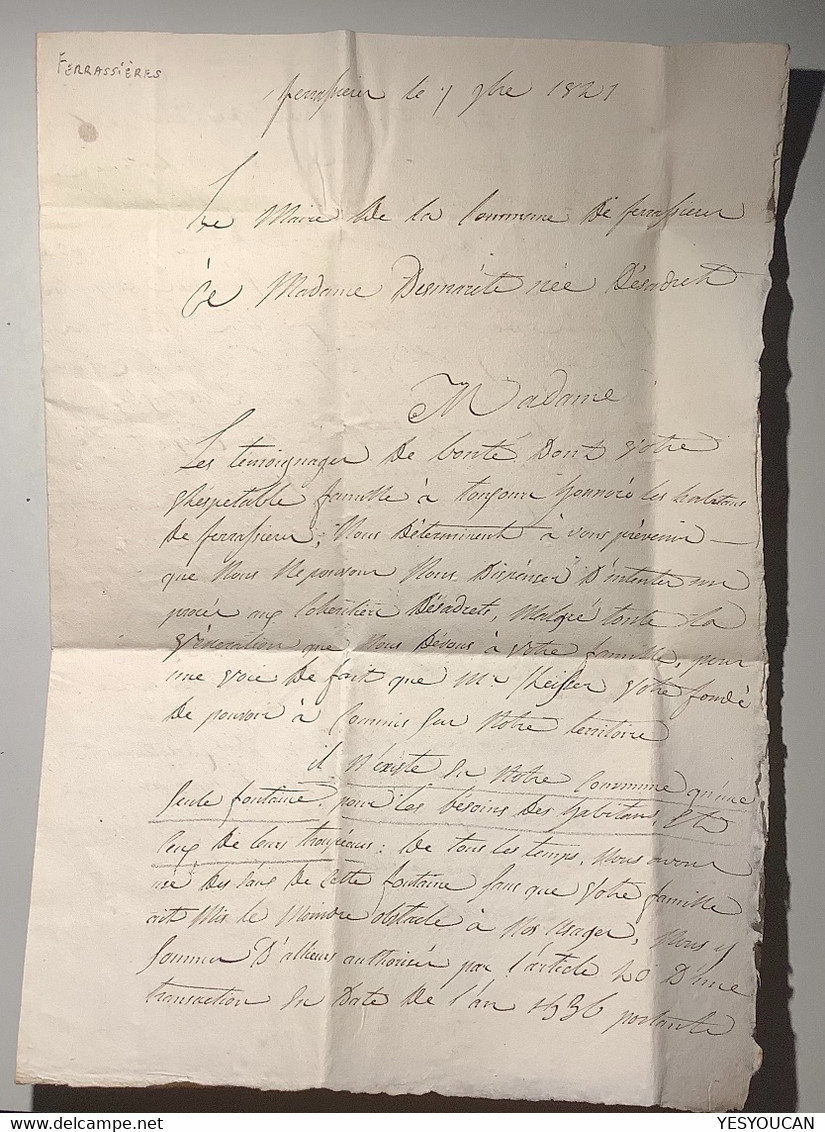 FERRASSIÈRES
ferrassieres le 7 9bre 1821
Le Maire De la Commune De ferrassieres
à Madame Desmarets née Désadrets
Madame
Les temoignages De bonté Dont Votre
Respectable famille à toujours honnoré les habitans
De ferrassieres, Nous Déterminent à vous prévenir
que Nous Ne pouvons Nous Dispenser D'intenter un
procès aux Cohéritiers Désadrets, Malgré toute la
Vénération que Nous Devons à Votre famille, pour
une Voie De fait que Mr Votre fondé
De pouvoir à Commis sur Notre territoire
il N'existe en Notre Commune qu'une
seule fontaine pour les besoins Des habitans Et
Ceux De leurs troupeaux : De tous les temps, Nous avons
usé Des Eaux De Cette fontaine sans que Votre famille
ait Mis le Moindre obstacle à Nos Usages, Nous y
sommes D'allieurs authorisés par l'article 20 D'une
transaction En Date De l'an 1536 portante
YESYOUCAN